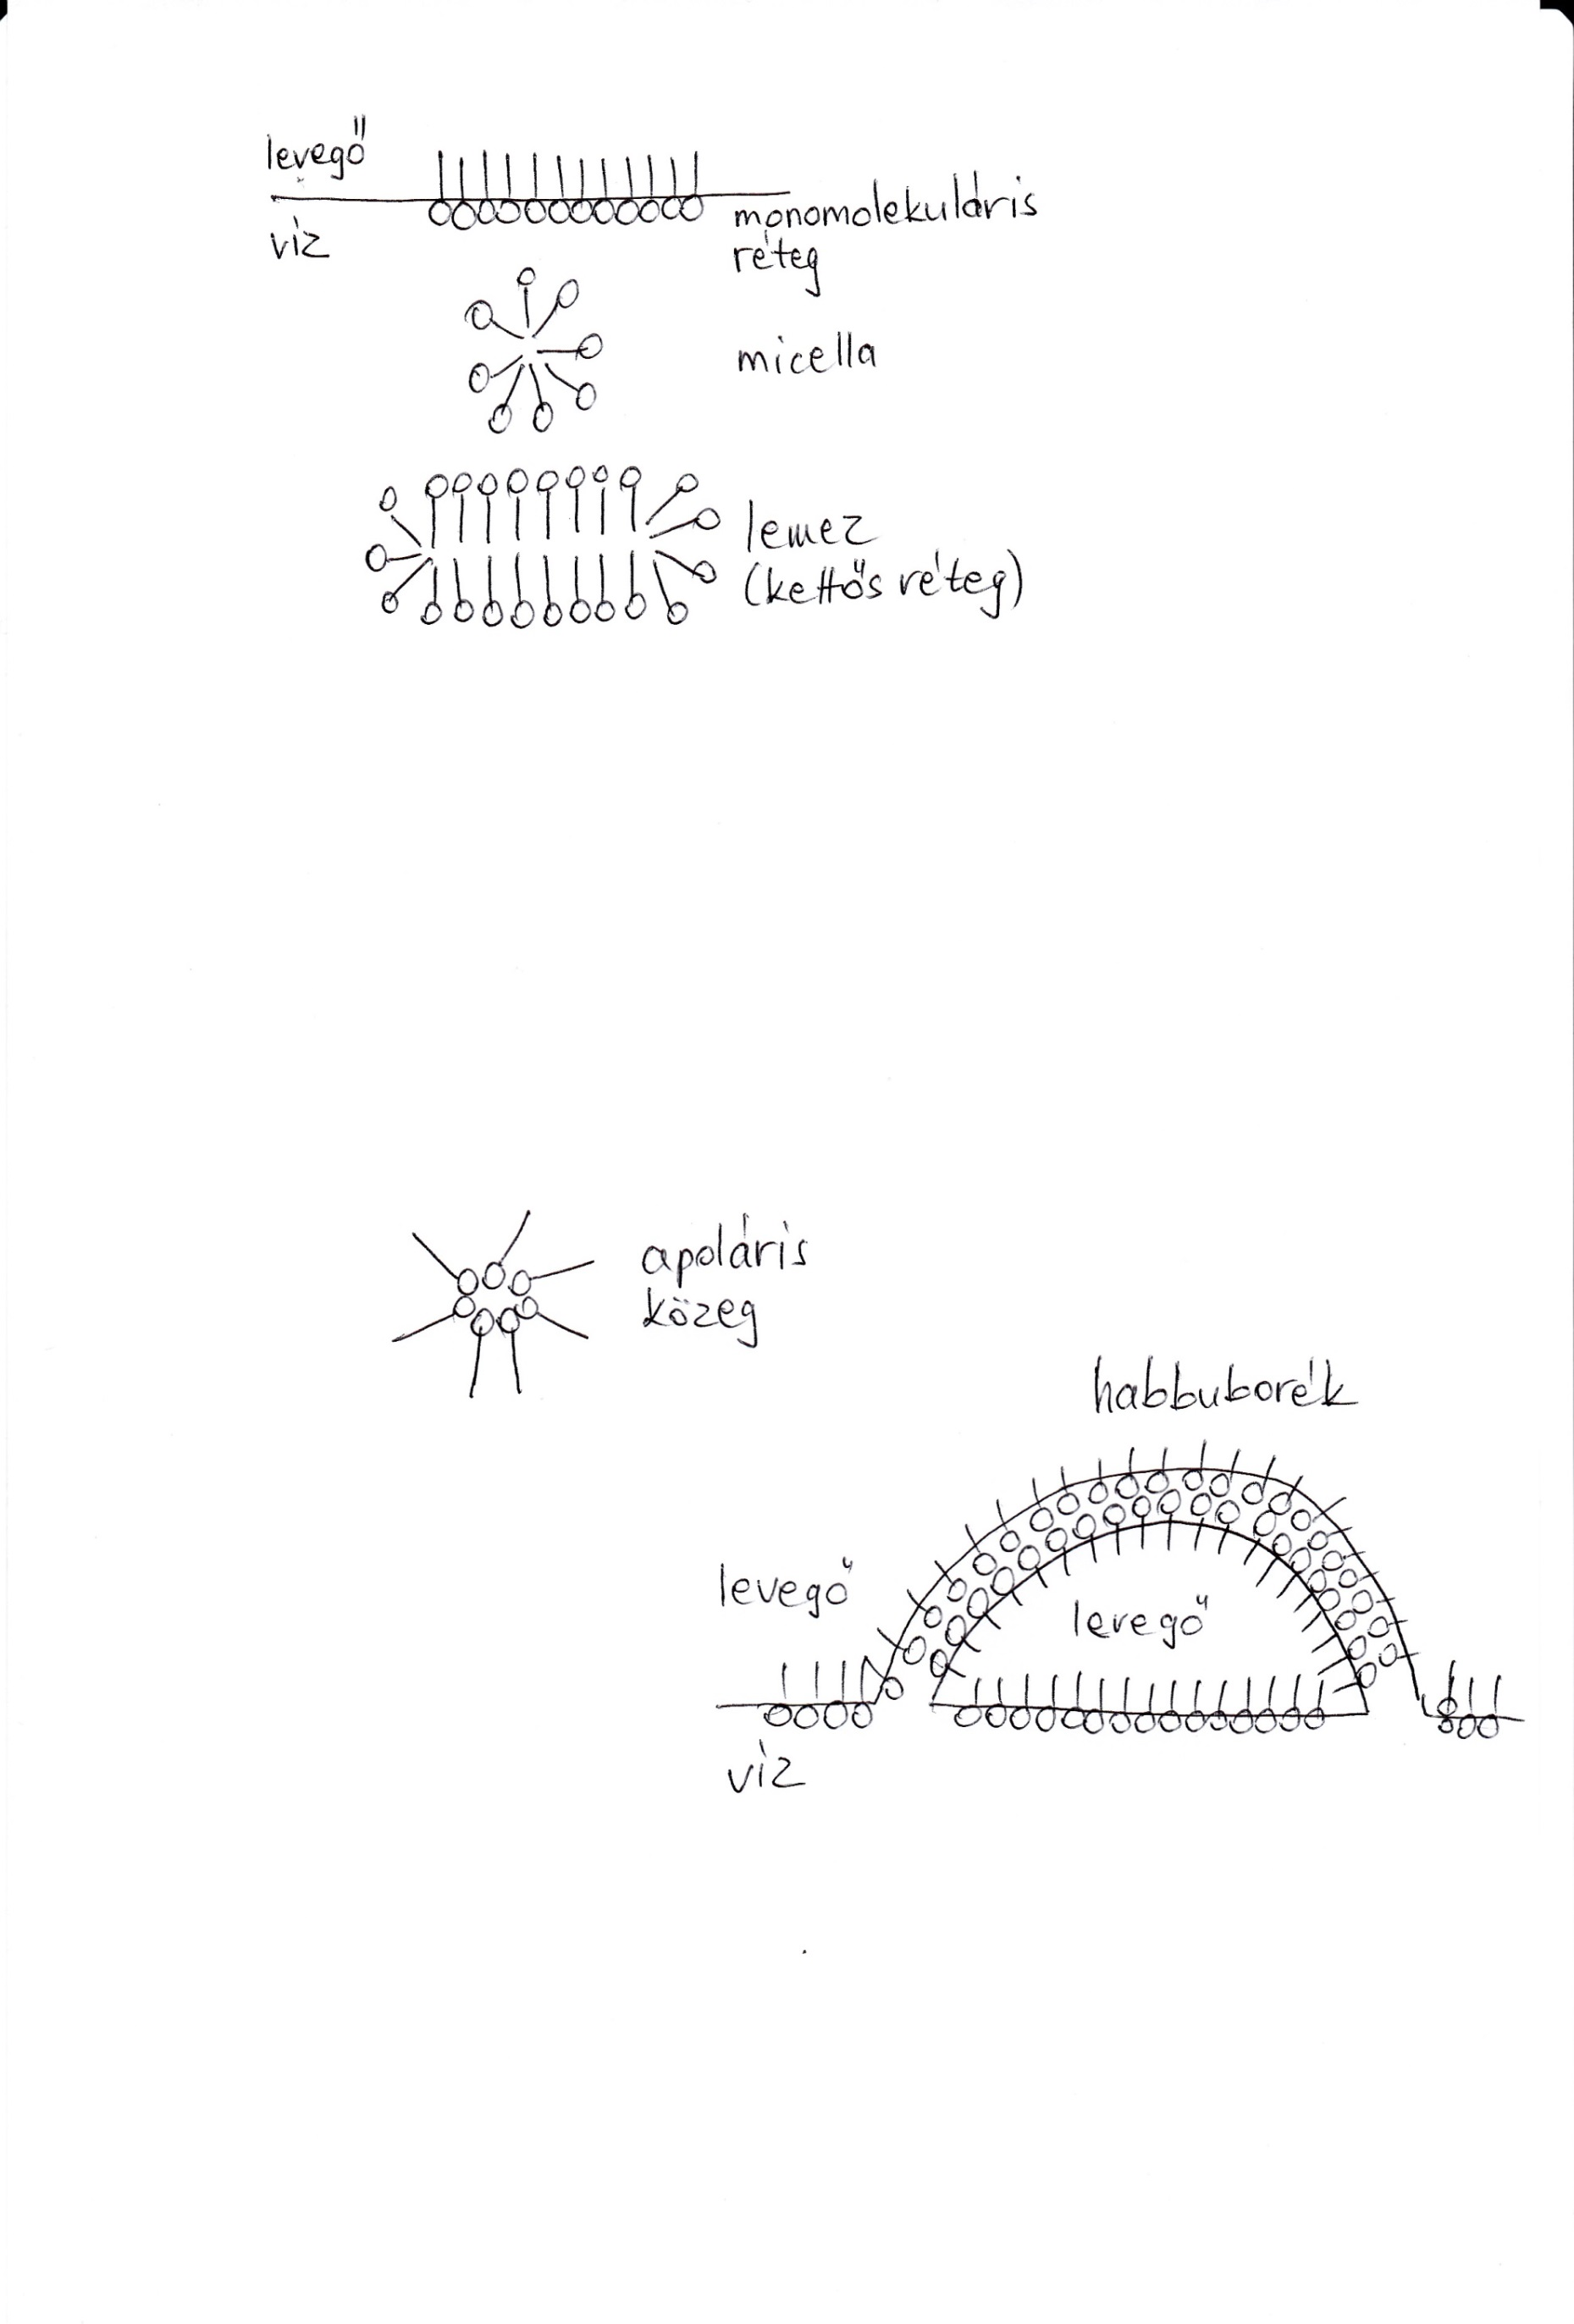 levegő
víz
monomolekuláris
réteg
micella
lemez
(kettős réteg)
apoláris
közeg
habbuborék
levegő
levegő
víz